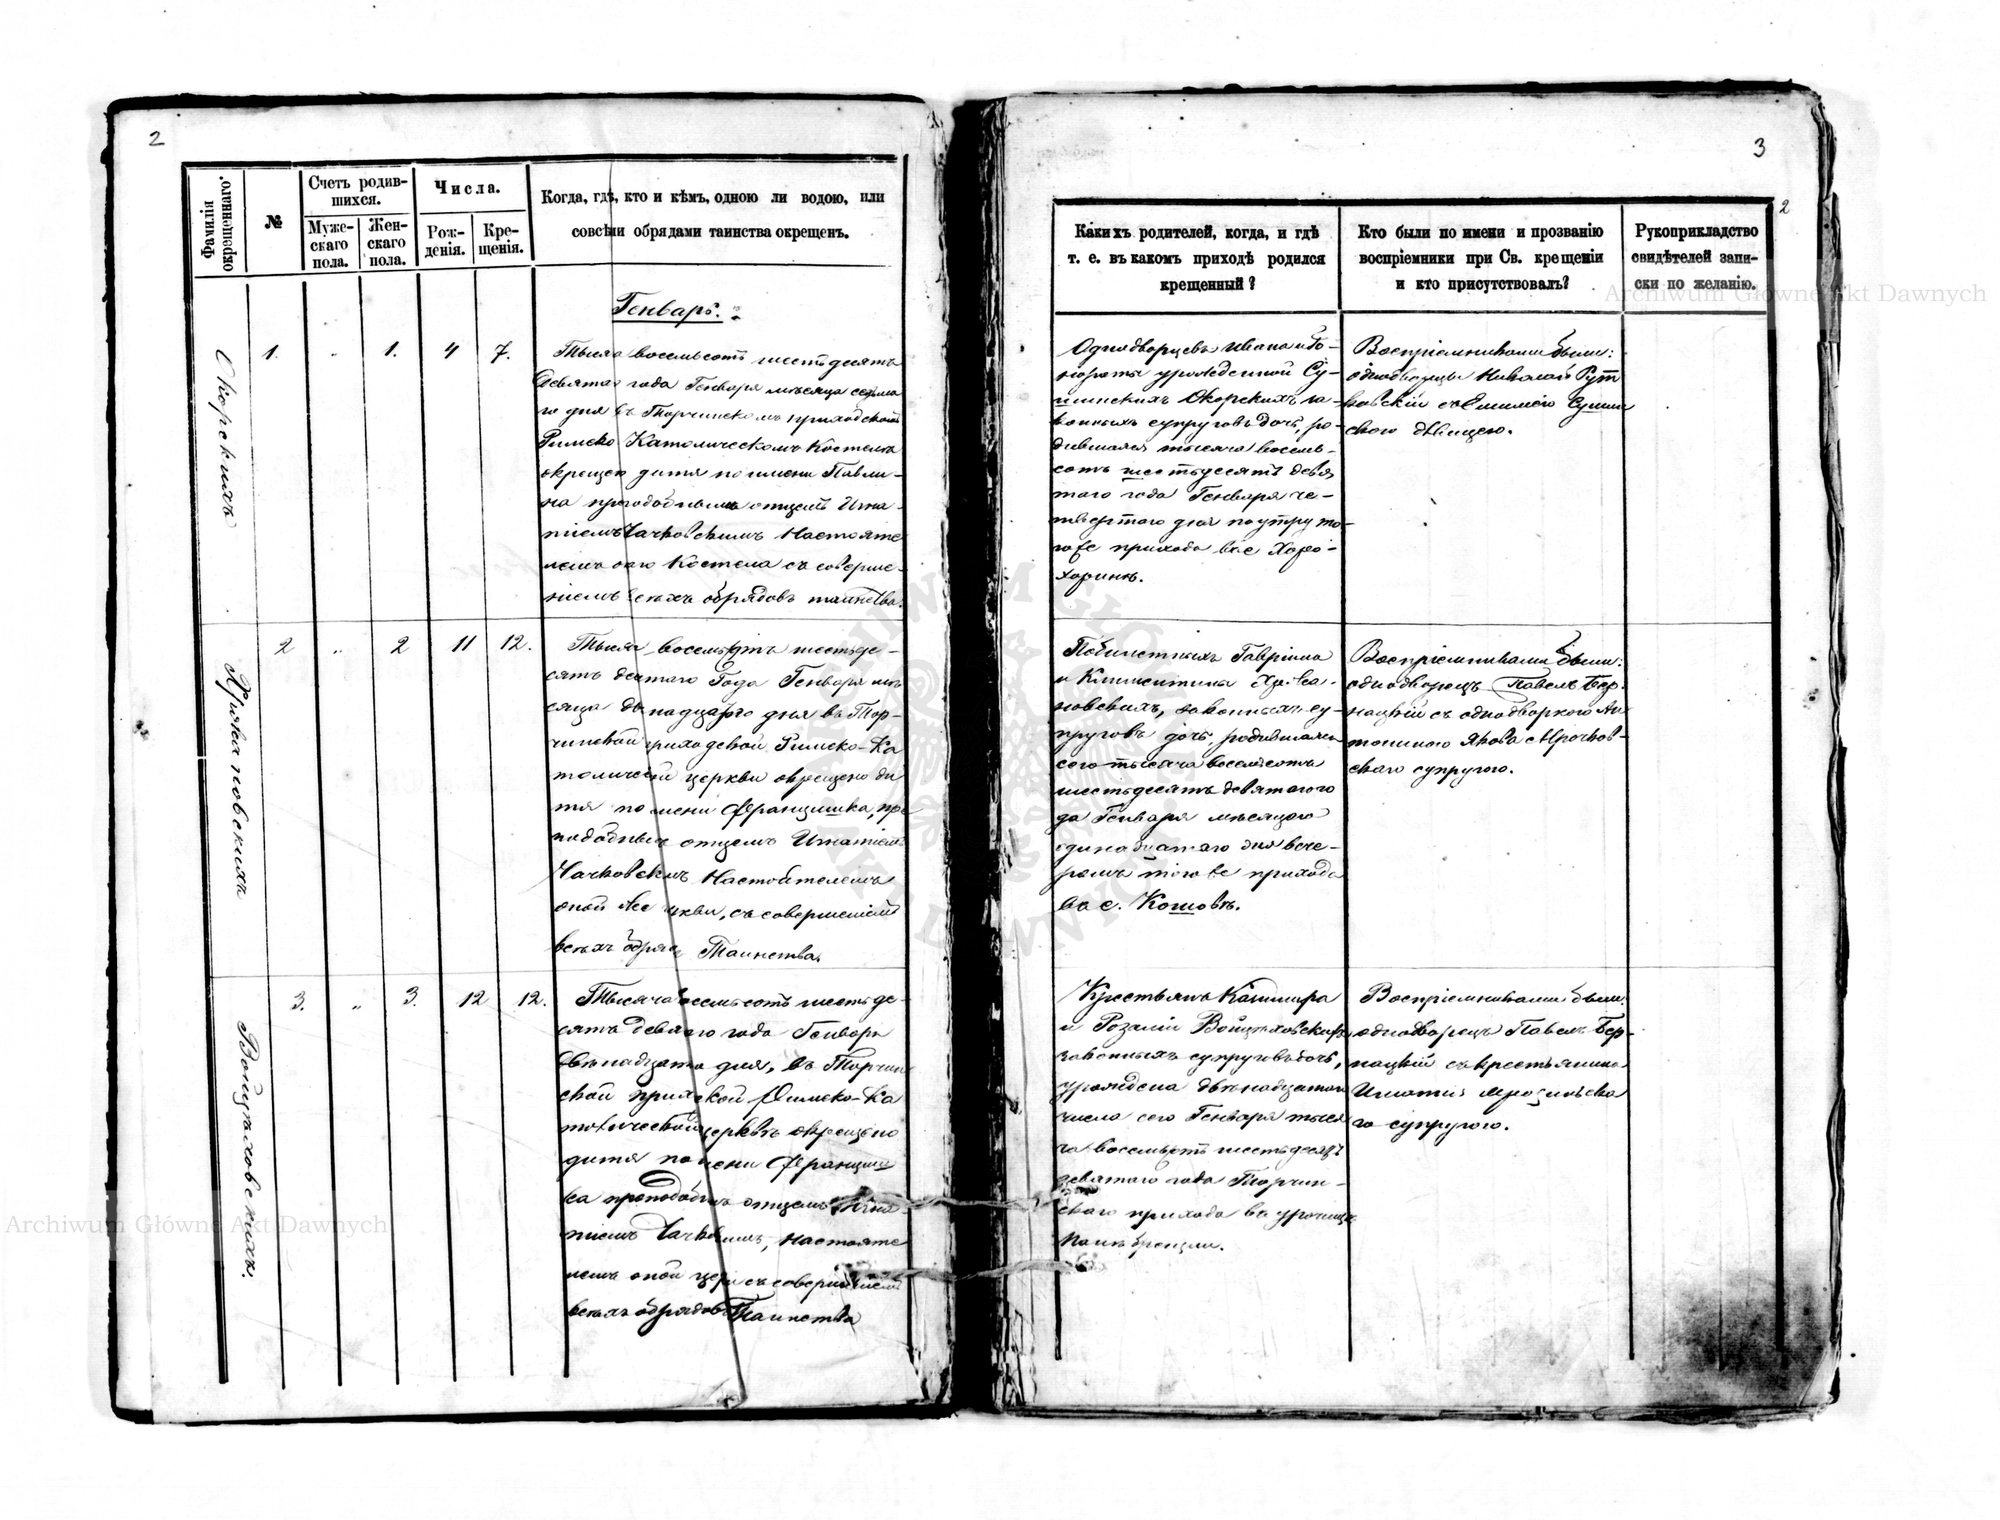 2
Фамилія окрещеннаго.
№
Счетъ родив-
шихся.
Муже-
скаго
пола.
Жен-
скаго
пола.
Числа.
Рож-
денія.
Кре-
щенія.
Когда, гдѣ, кто и кѣмъ, одною ли водою, или
совсѣми обрядами таинства окрещенъ.
Генварь.
Окорскихъ
1.
„
1.
4
7.
Тысяча восемьсотъ шестьдесятъ
девятаго года Генваря мѣсяца седьма
го дня въ Торчинскомъ приходскомъ
Римско Католическомъ Костелѣ
окрещено дитя по имени Павли-
на преподобнымъ отцемъ Игна-
тіемъ Чачковскимъ Настояте
лемъ сего Костела съ соверше-
ніемъ всѣхъ обрядовъ таинства.
2
„
2
11
12.
Тысяча восемьсотъ шестьде-
сятъ девятаго Года Генваря мѣ
сяца двѣнадцатаго дня въ Тор-
чинской приходской Римско-Ка
толической церкви окрещено ди
тя по имени Францишка, пре
подобнымъ отцемъ Игнатіемъ
Чачковскимъ Настоятелемъ
оной же церкви, съ совершеніемъ
всѣхъ обрядовъ Таинства.
Войцѣховскихъ.
3.
„
3.
12
12.
Тысяча восемьсотъ шестьде-
сятъ девятаго года Генваря
двѣнадцатаго дня, въ Торчин
ской приходской Римско-Ка
толической церквѣ окрещено
дитя по имени Францишка
преподобнымъ отцемъ Игна-
тіемъ Чачковскимъ, настояте
лемъ оной церкви съ совершеніемъ
всѣхъ обрядовъ Таинства
3
2
Какихъ родителей, когда, и гдѣ
т. е. въ какомъ приходѣ родился
крещенный?
Кто были по имени и прозванію
воспріемники при Св. крещеніи
и кто присутствовалъ?
Рукоприкладство
свидѣтелей запи-
ски по желанію.
Однодворцевъ Ивана и Го-
нораты урожденной Су-
шинскихъ Окорскихъ за-
конныхъ супруговъ дочь, ро-
дившаяся тысяча восемь-
сотъ шестьдесятъ девя
таго года Генваря че-
твертаго дня поутру то-
го же прихода въ с. Хоро-
хоринѣ.
Воспріемниками были:
однодворцы Николай Рут
ковскій съ Сушин
скою дѣвицею.
Гавріила
и Клементины
новскихъ, законныхъ су-
пруговъ дочь, родившаяся
сего тысяча восемьсотъ
шестьдесятъ девятаго го
да Генваря мѣсяца
одинадцатаго дня вече-
ромъ того же прихода
въ с. Кошовѣ.
Воспріемниками были:
однодворецъ Павелъ Бер-
нацкій съ однодворкою Ан
тониною Якова Мрочков-
скаго супругою.
Крестьянъ Казимира
и Розаліи Войцѣховскихъ
законныхъ супруговъ дочь,
урождена двѣнадцатаго
числа сего Генваря тыся
ча восемьсотъ шестьдесятъ
девятаго года Торчин-
скаго прихода въ урочищѣ
Воспріемниками были:
однодворецъ Павелъ Бер-
нацкій съ крестьянина
го супругою.
Archiwum Główne Akt Dawnych
Archiwum Główne Akt Dawnych